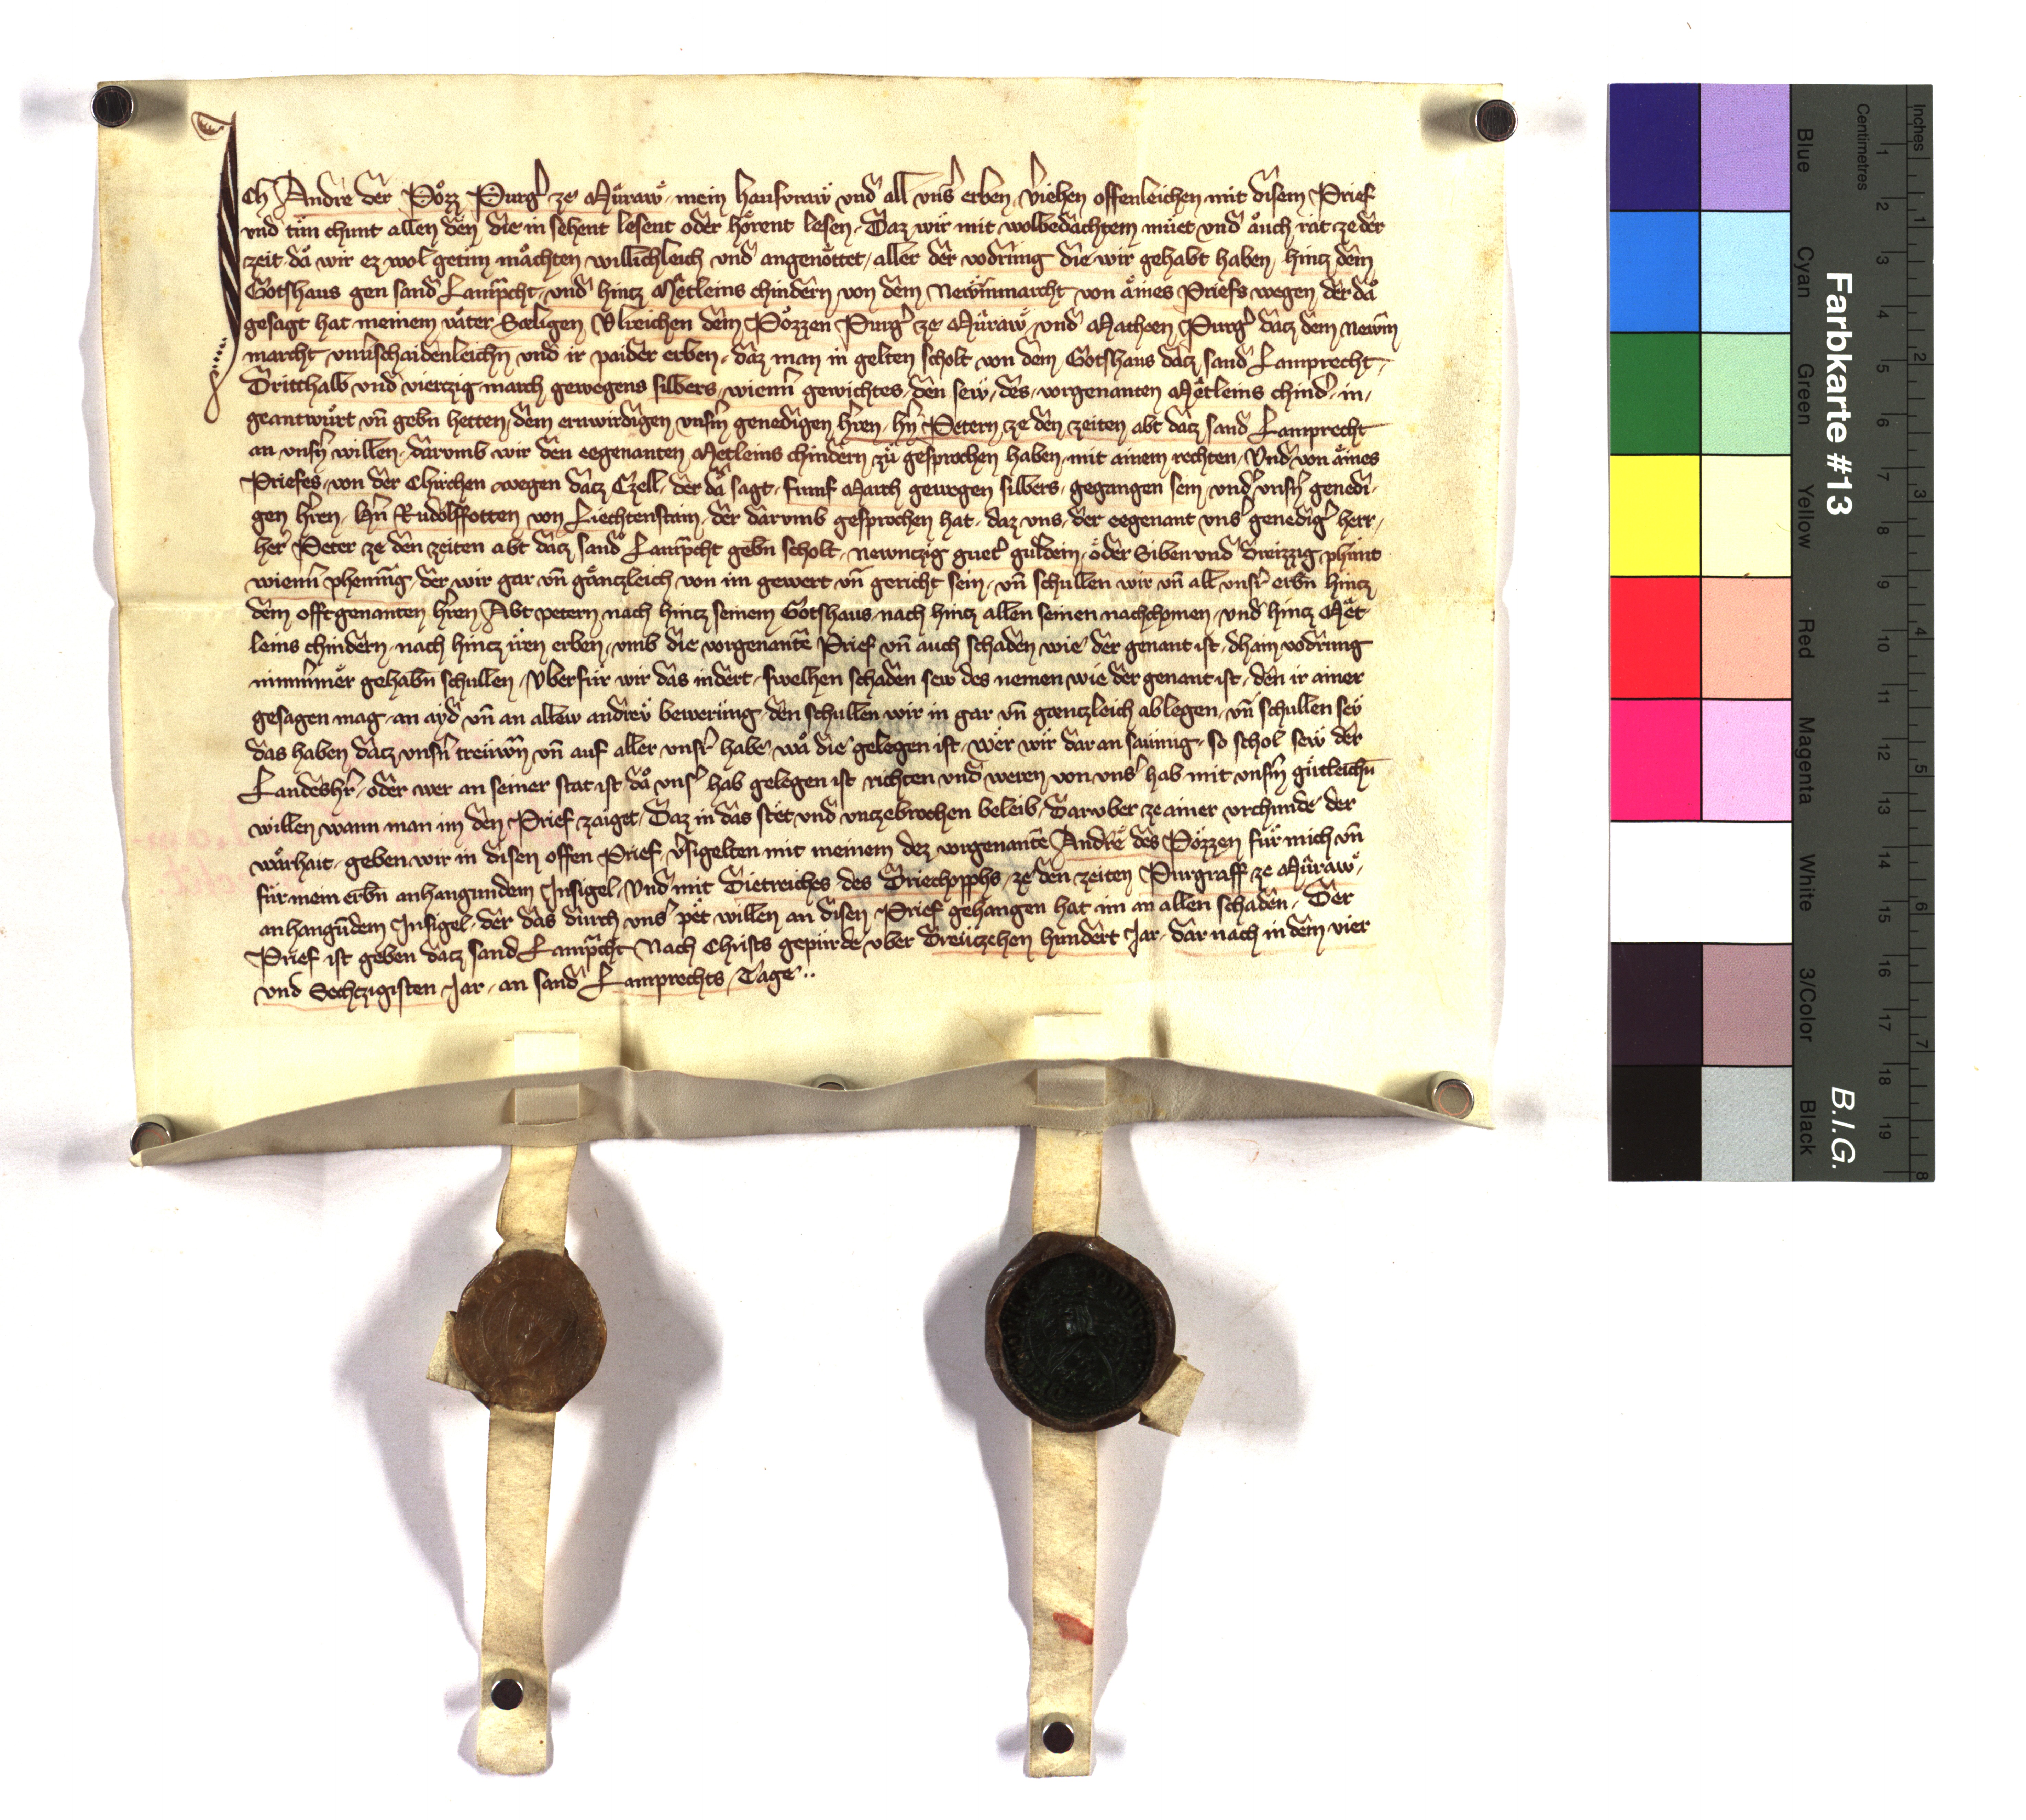 Ich Andre der Pözz Purgˀ ze Mu̇raw mein hausvraw vnd all vnsˀ erben vˀiehen offenleichen mit disem Prief
vnd tu̇n chunt allen den die in sehent lesent oder hörent lesen Daz wir mit wolbedachtem mu̇et vnd auch rat ze der
zeit da wir ez wol getu̇n machten willichleich vnd angenöttet aller der vodrung die wir gehabt haben hincz dem
Gotshaus gen sand Lamp̄cht vnd hincz Mëtleins chindern von dem Newnmarcht von aines Priefs wegen der da
gesagt hat meinem vater Sæligen Vlreichen dem Pözzen Purgˀ ze Mu̇raw vnd Matheen Purgˀ dacz dem Newn
marcht vnuˀschaidenleichn vnd ir paider erben daz man in gelten scholt von dem Gotshaus dacz sand Lamprecht
Dritthalb vnd vierczig march gewegens silbers wienn̄ gewichtes den sew des vorgenanten Mëtleins chindˀ in
geantwu̇rt vn̄ gebn̄ hetten dem erwirdigen vnsˀm genedigen hˀren hˀn Petern ze den zeiten abt dacz sand Lamprecht
an vnsˀn willen darvmb wir den eegenanten Metleins chindern zu̇ gesprochen haben mit ainem rechten Vnd von aines
Priefes von der Chirchen wegen dacz Czell der da sagt fumf March gewegen silbers gegangen sein vnd vnsˀn genedi
gen hˀren hˀn Rudolff otten von Liechtenstain der darvmb gesprochen hat daz vns der eegenant vnsˀ genedigˀ herr
herˀ Peter ze den zeiten abt dacz sand Lamp̄cht gebn̄ scholt newnczig guetˀ guldein oder Siben vnd dreizzig phunt
wienn̄ phenning der wir gar vn̄ gänczleich von im gewert vn̄ gericht sein vn̄ schullen wir vn̄ all vnsrˀ erbn̄ hincz
dem offtgenanten hˀren Abt petern nach hincz seinem Gotshaus nach hincz allen seinen nachchomen vnd hincz Mët
leins chindern nach hincz iren erben vmb die vorgenantē Prief vn̄ auch schaden wie der genant ist dhain vodrung
nimmˀmer gehabn̄ schullen Vberfu̇r wir das indert swelhen schaden sew des nemen wie der genant ist den ir ainer
gesagen mag an ayd vn̄ an allew andrew bewerung den schullen wir in gar vn̄ gænczleich ablegen vn̄ schullen sey
das haben dacz vnsˀn treuwn̄ vn̄ auf aller vnsrˀ habe wa die gelegen ist wer wir dar an saumig so schol sew der
Landeshˀr oder wer an seiner stat ist da vnsˀ hab gelegen ist richten vnd weren von vnsˀ hab mit vnsˀm gu̇tleichn̄
willen wann man im den Prief zaiget Daz in das stet vnd vnczebrochen beleib Daruber ze ainer vrchunde der
warhait geben wir in disen offen Prief vˀsigelten mit meinem dez vorgenantē Andre des Pözzen fu̇r mich vn̄
fu̇r mein erbn̄ anhangundem Insigel Vnd mit Dietreiches des Driechopphs ze den zeiten Purgraff ze Mu̇raw
anhangūdem Insigel der das durch vnsˀ pet willen an disen Prief gehangen hat im an allen schaden Der
Prief ist geben dacz sand Lamp̄cht Nach Christs gepu̇rde vber Dreuczehen hundert Jar dar nach in dem vier
vnd Sechczigisten Jar an sand Lamprechts Tage
Farbkarte #13
B.I.G.
Inches
Centimetres
1 2 3 4 5 6 7 8 9 10 11 12 13 14 15 16 17 18 19
1 2 3 4 5 6 7 8
Blue
Cyan
Green
Yellow
Red
Magenta
White
3/Color
Black